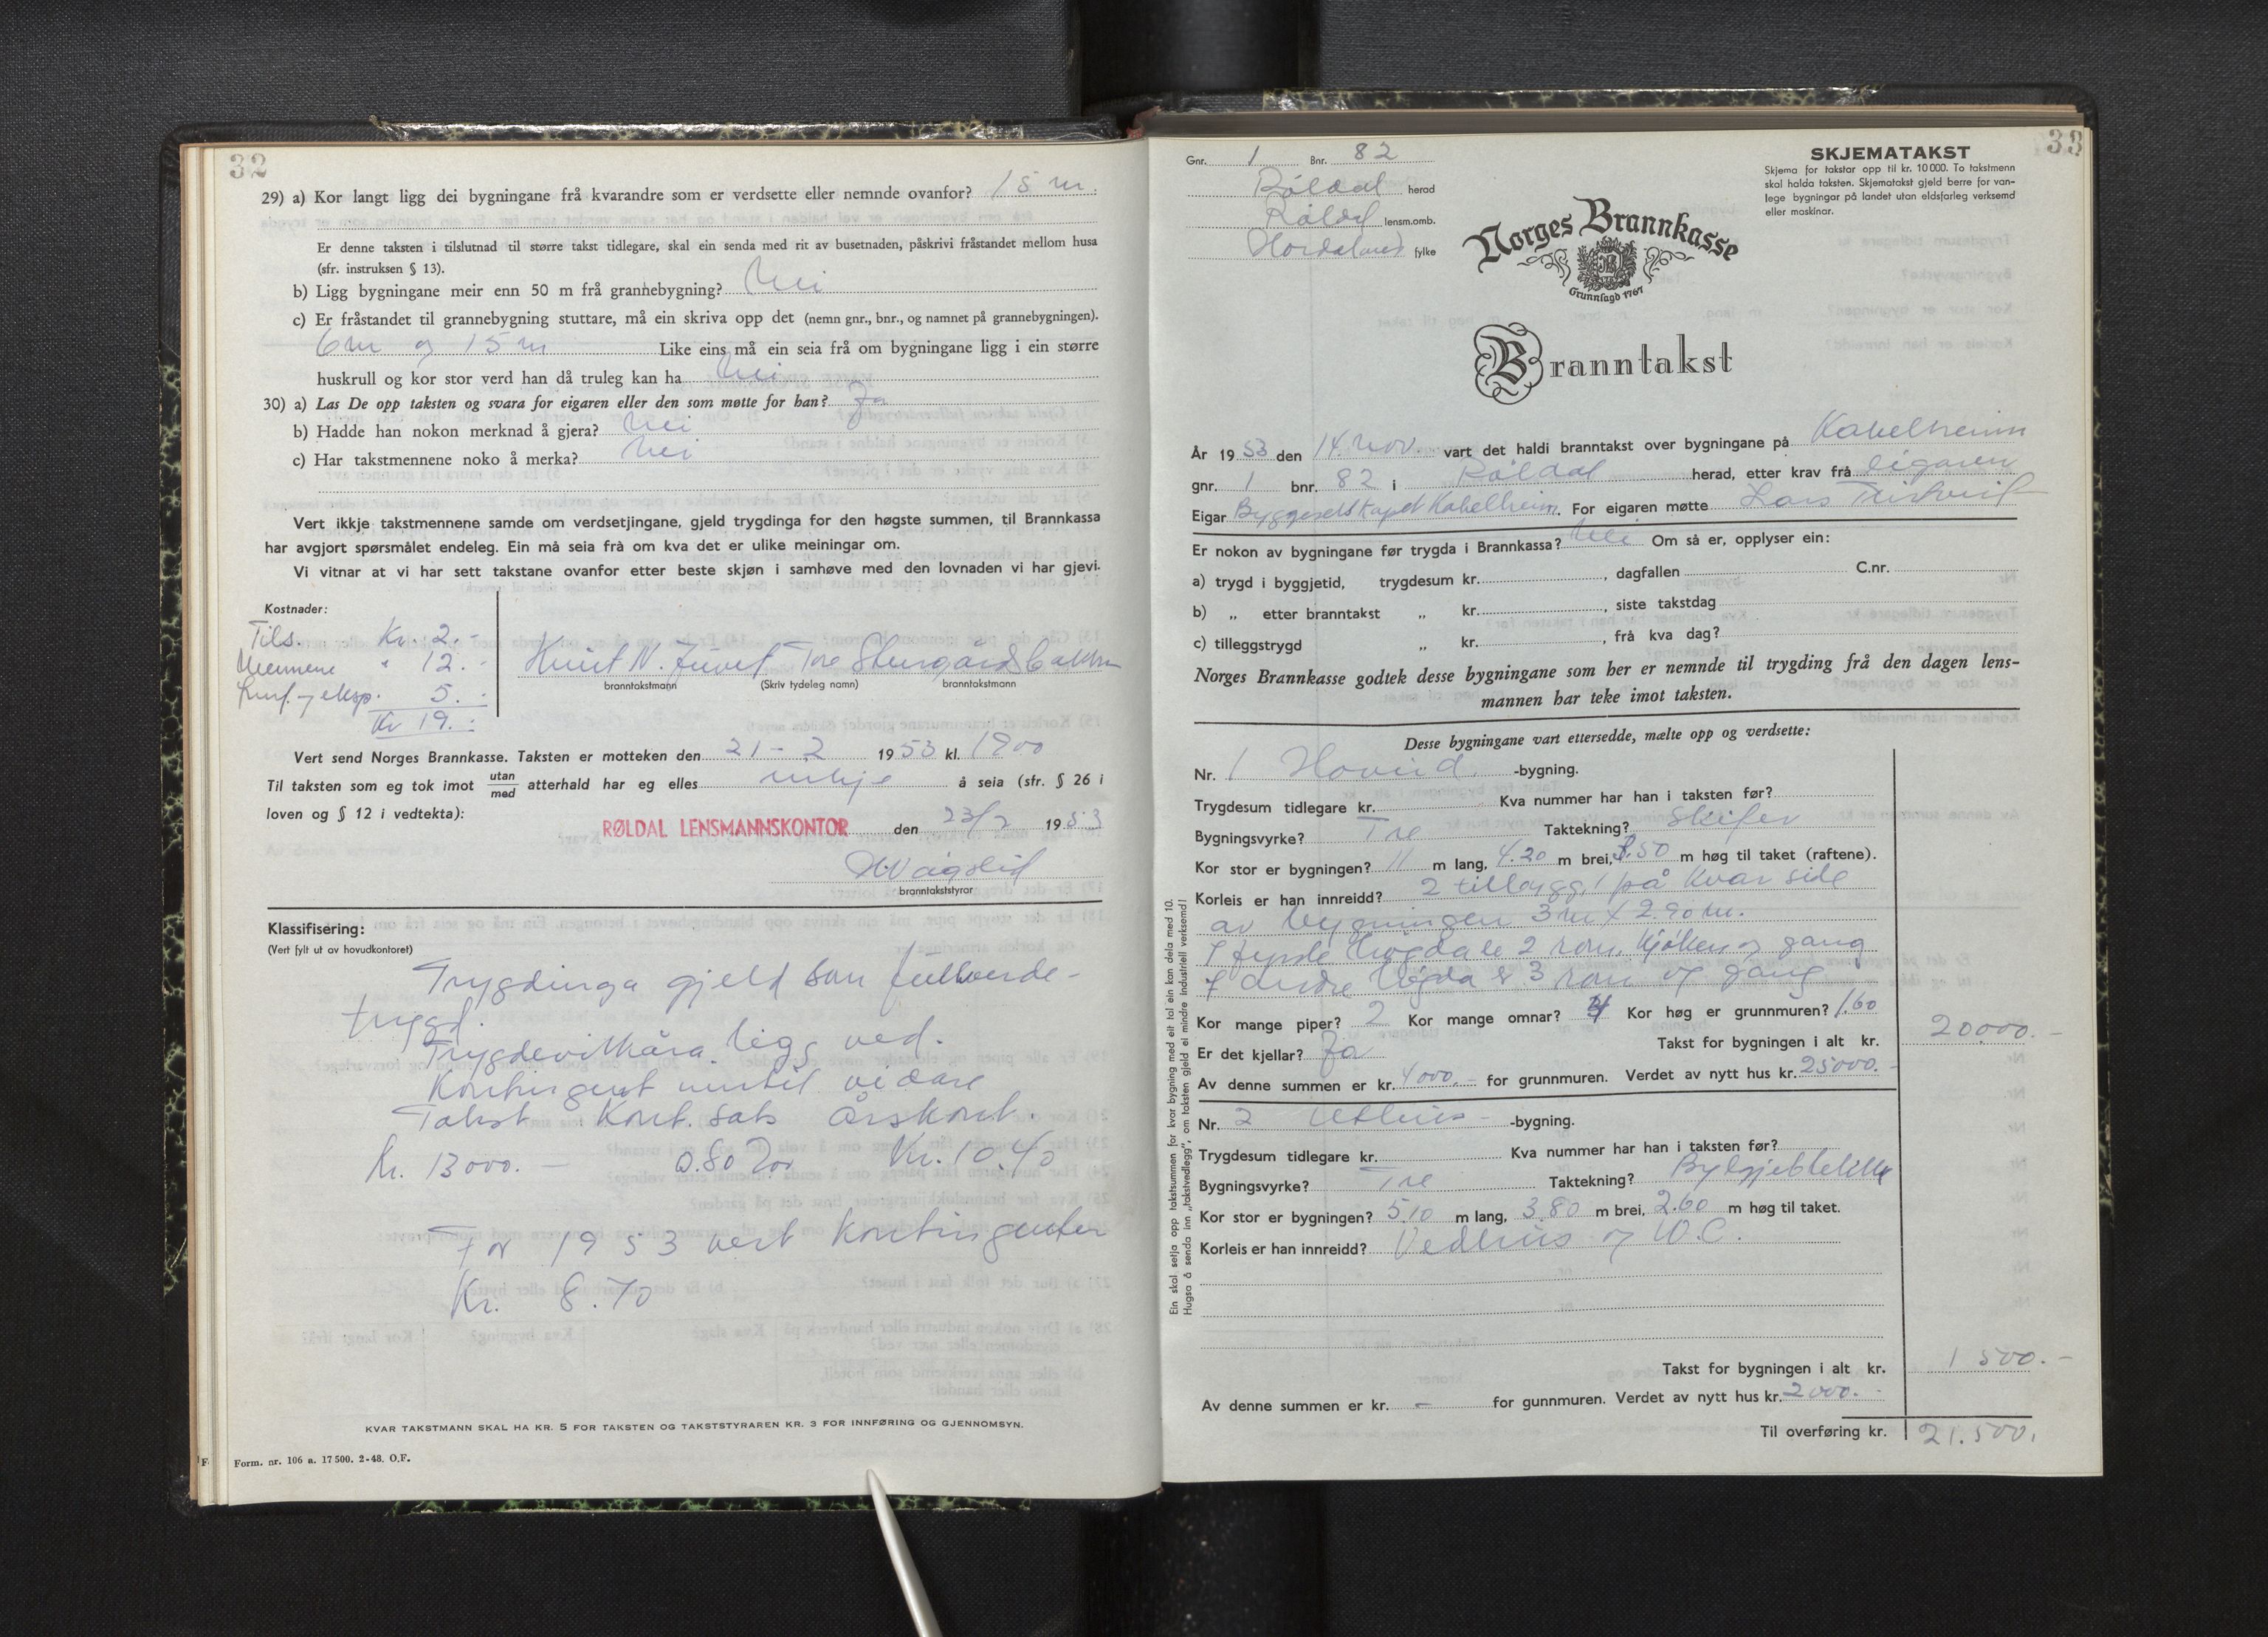 32
29) a) Kor langt ligg dei bygningane frå kvarandre som er verdsette eller nemnde ovanfor? 15 m.
Er denne taksten i tilslutnad til større takst tidlegare, skal ein senda med rit av busetnaden, påskrivi fråstandet mellom husa
(sfr. instruksen § 13).
b) Ligg bygningane meir enn 50 m frå grannebygning? Nei
c) Er fråstandet til grannebygning stuttare, må ein skriva opp det (nemn gnr., bnr., og namnet på grannebygningen).
6 m og 15 m Like eins må ein seia frå om bygningane ligg i ein større
huskrull og kor stor verd han då truleg kan ha Nei
30) a) Las De opp taksten og svara for eigaren eller den som møtte for han? Ja
b) Hadde han nokon merknad å gjera? Nei
c) Har takstmennene noko å merka? Nei
Vert ikkje takstmennene samde om verdsetjingane, gjeld trygdinga for den høgste summen, til Brannkassa
har avgjort spørsmålet endeleg. Ein må seia frå om kva det er ulike meiningar om.
Vi vitnar at vi har sett takstane ovanfor etter beste skjøn i samhøve med den lovnaden vi har gjevi.
Kostnader:
Tils. Kr. 2.-
Mennene " 12.-
Innf. og eksp. 5.-
Kr 19.-
Knut N. Juvet Tore Stensgårdsbakken
branntakstmann (Skriv tydeleg namn) branntakstmann
Vert send Norges Brannkasse. Taksten er motteken den 21-2 1953 kl. 1900
Til taksten som eg tok imot utan/med atterhald har eg elles inkje å seia (sfr. § 26 i
loven og § 12 i vedtekta):
RØLDAL LENSMANNSKONTOR den 23/2 1953
H. Vågslid
branntakststyrar
Klassifisering:
(Vert fylt ut av hovudkontoret)
Trygdinga gjeld som fullverde-
trygd.
Trygdevilkåra legg ved.
Kontingent inntil vidare
Takst Kont. sats Årskont.
Kr. 13000.- 0.80 ‰ Kr. 10.40
For 1953 vert kontingenten
Kr. 8.70
KVAR TAKSTMANN SKAL HA KR. 5 FOR TAKSTEN OG TAKSTSTYRAREN KR. 3 FOR INNFØRING OG GJENNOMSYN.
Form. nr. 106 a. 17 500. 2-48. O.F.
33
Gnr. 1 Bnr. 82
Røldal herad
Røldal lensm.omb.
Hordaland fylke
SKJEMATAKST
Skjema for takstar opp til kr. 10 000. To takstmenn
skal halda taksten. Skjematakst gjeld berre for van-
lege bygningar på landet utan eldsfarleg verksemd
eller maskinar.
Norges Brannkasse
Grunnlagd 1767
Branntakst
År 1953 den 14. nov. vart det haldi branntakst over bygningane på Kabelheim
gnr. 1 bnr. 82 i Røldal herad, etter krav frå eigaren
Eigar Byggeselskapet Kabelheim. For eigaren møtte Lars
Er nokon av bygningane før trygda i Brannkassa? Nei Om så er, opplyser ein:
a) trygd i byggjetid, trygdesum kr. , dagfallen C.nr.
b) „ etter branntakst „ kr. , siste takstdag
c) tilleggstrygd „ kr. , frå kva dag?
Norges Brannkasse godtek desse bygningane som her er nemnde til trygding frå den dagen lens-
mannen har teke imot taksten.
Desse bygningane vart ettersedde, mælte opp og verdsette:
Nr. 1 Hovud -bygning.
Trygdesum tidlegare kr. Kva nummer har han i taksten før?
Bygningsvyrke? Tre Taktekning? Skifer
Kor stor er bygningen? 11 m lang, 4.20 m brei, 3.50 m høg til taket (raftene).
Korleis er han innreidd? 2 tilbygg, 1 på kvar side
av bygningen 3 m x 2.90 m.
I fyrste høgda er 2 rom, kjøken og gang
I andre høgda er 3 rom og gang
Kor mange piper? 2 Kor mange omnar? 4 Kor høg er grunnmuren? 1.60
Er det kjellar? Ja Takst for bygningen i alt kr. 20.000.-
Av denne summen er kr. 4000.- for grunnmuren. Verdet av nytt hus kr. 25000.-
Nr. 2 Uthus -bygning.
Trygdesum tidlegare kr. Kva nummer har han i taksten før?
Bygningsvyrke? Tre Taktekning? Bylgjeblekk
Kor stor er bygningen? 5.10 m lang, 3.80 m brei, 2.60 m høg til taket.
Korleis er han innreidd? Vedhus og W.C.
Takst for bygningen i alt kr. 1500.-
Av denne summen er kr. - for gunnmuren. Verdet av nytt hus kr. 2000.-
Til overføring kr. 21.500.
Ein skal setja opp takstsummen for kvar bygning med eit tal ein kan dela med 10.
Hugsa å senda inn „takstvedlegg“, om taksten gjeld ei mindre industriell verksemd!